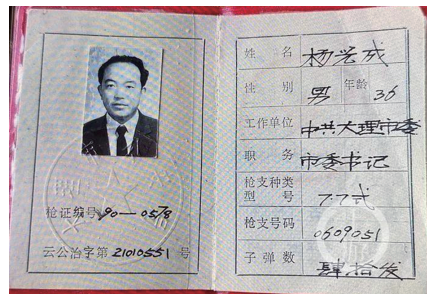 枪证编号90—0578
云公治字第21010551号
姓名 杨宏成
性别 男 年龄 36
工作单位 中共大理市委
职务 市委书记
枪支种类型号 7.7式
枪支号码 0609051
子弹数 肆拾发